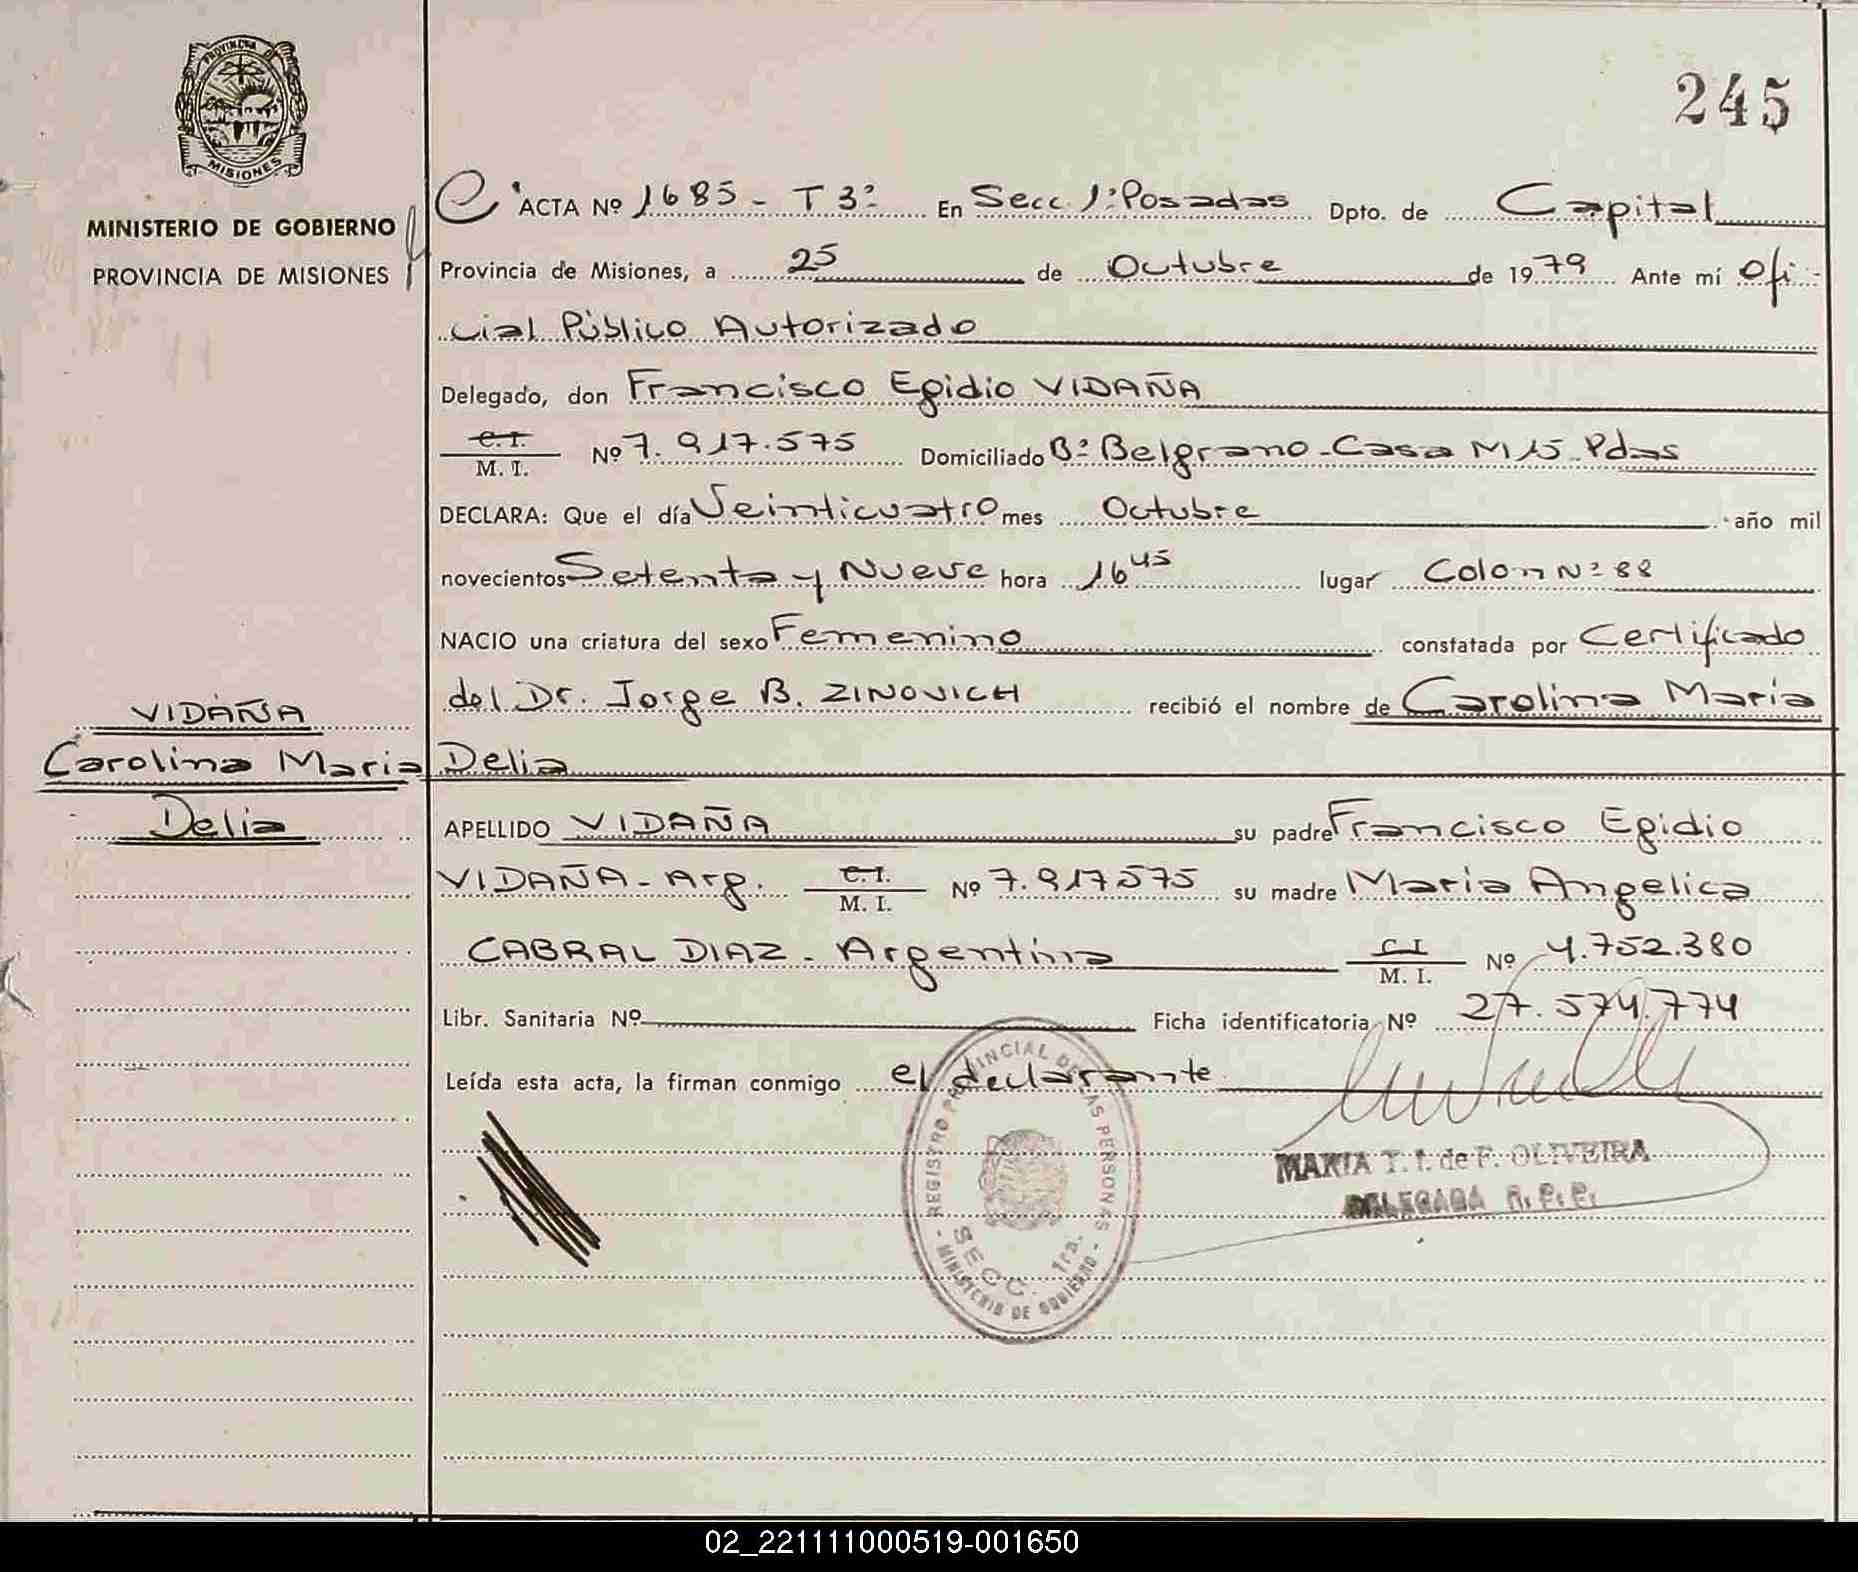 PROVINCIA DE
MISIONES
MINISTERIO DE GOBIERNO
PROVINCIA DE MISIONES
VIDAÑA
Carolina Maria
Delia
245
ACTA Nº 1685 - T 3º En Secc 1ª Posadas Dpto. de Capital
Provincia de Misiones, a 25 de Octubre de 1979 Ante mí Ofi-
cial Público Autorizado
Delegado, don Francisco Egidio VIDAÑA
C.I.
M. I. Nº 7.917.575 Domiciliado Bº Belgrano - Casa M 15 Pdas
DECLARA: Que el día Veinticuatro mes Octubre año mil
novecientos Setenta y Nueve hora 16 45 lugar Colon Nº 88
NACIO una criatura del sexo Femenino constatada por Certificado
del Dr. Jorge B. ZINOVICH recibió el nombre de Carolina Maria
Delia
APELLIDO VIDAÑA su padre Francisco Egidio
VIDAÑA - Arg. C.I. M. I. Nº 7.917575 su madre Maria Angelica
CABRAL DIAZ - Argentina C.I. M. I. Nº 4.752.380
Libr. Sanitaria Nº Ficha identificatoria Nº 27.574.774
Leída esta acta, la firman conmigo el declarante
REGISTRO PROVINCIAL DE LAS PERSONAS
SECC. 1ra.
- MINISTERIO DE GOBIERNO -
MARIA T. I. de F. OLIVEIRA
DELEGADA R. P. P.
02_221111000519-001650